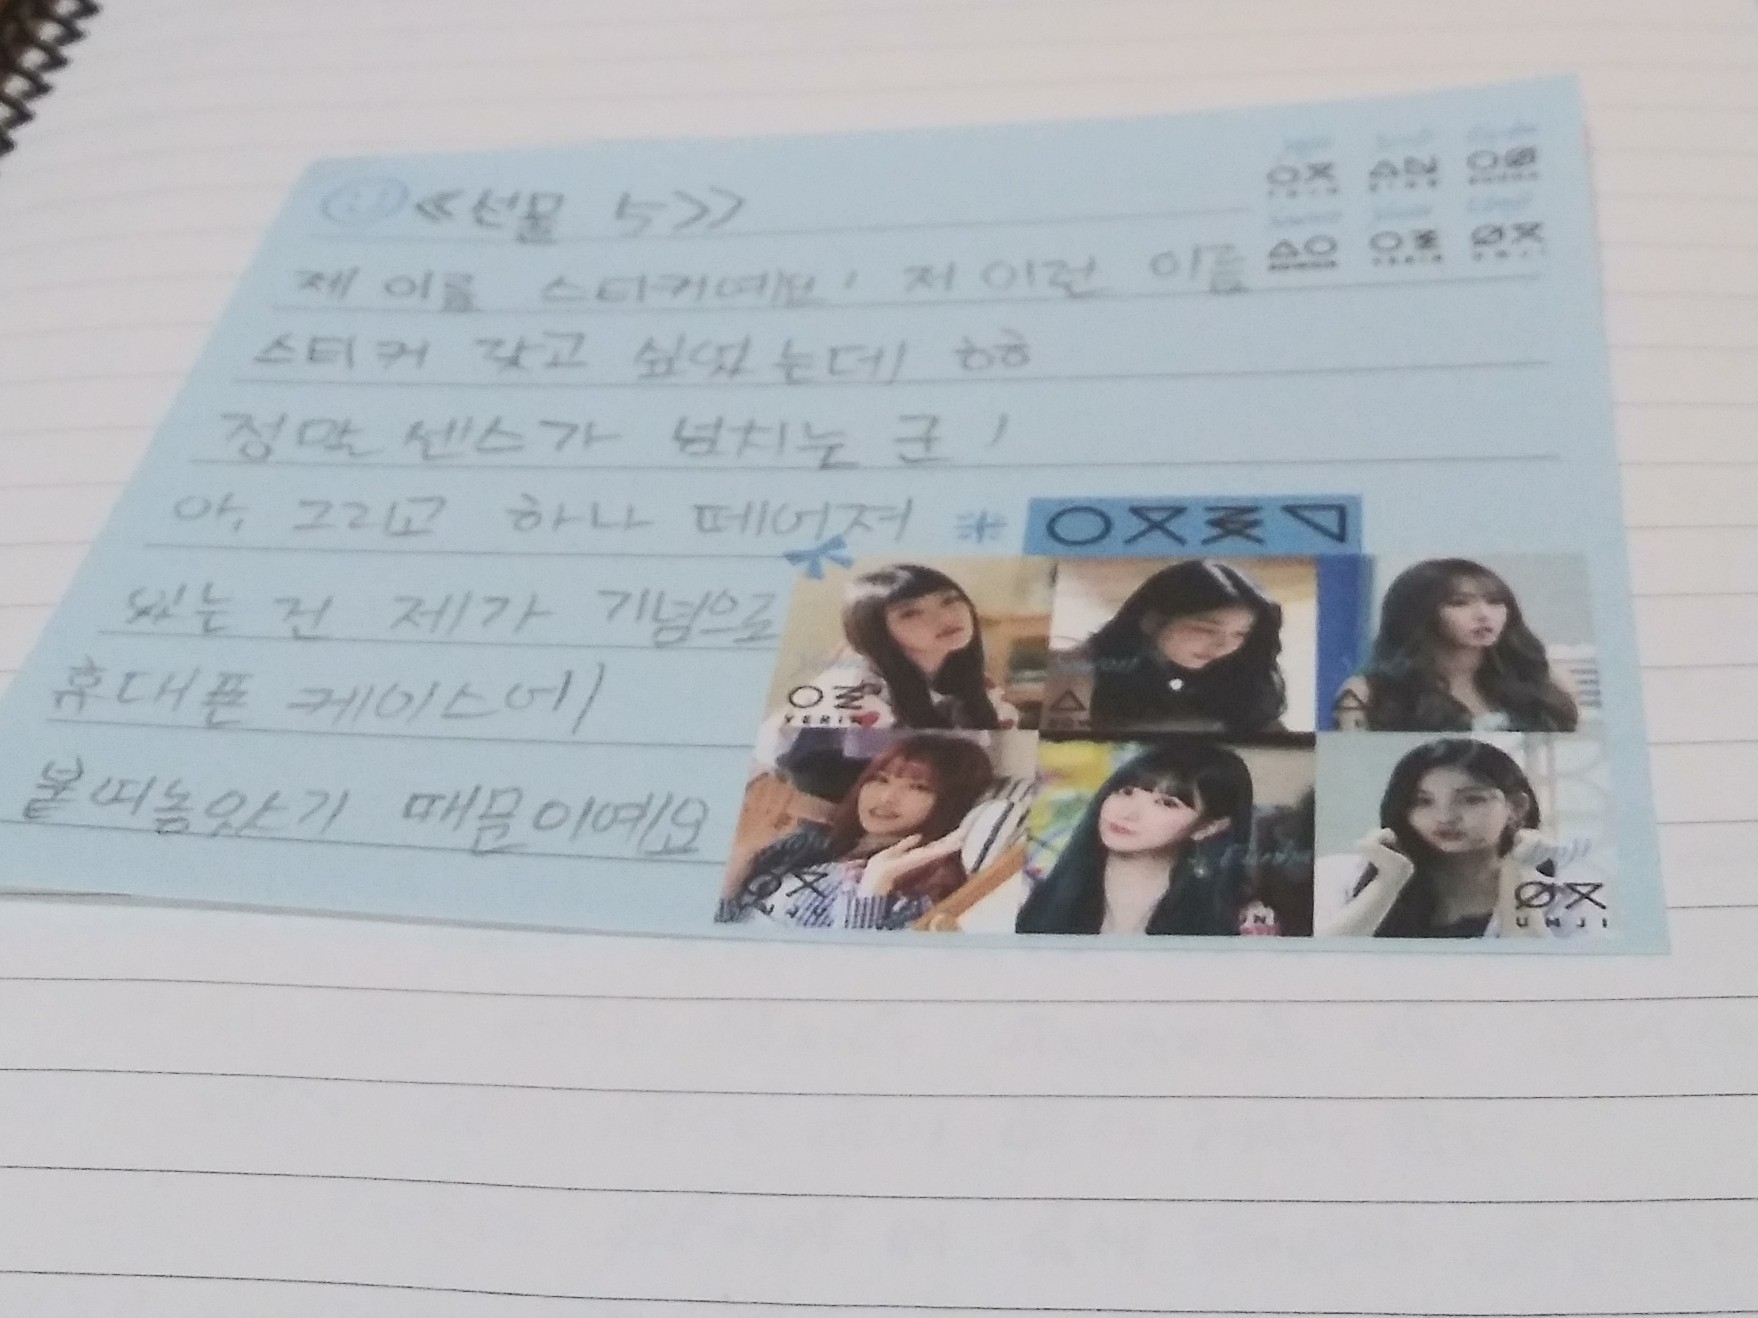 ≪선물 5≫
제 이름 스티커예요! 저 이런 이름
스티커 갖고 싶었는데 ㅎㅎ
정말 센스가 넘치는 군!
아, 그리고 하나 떼어져
있는 건 제가 기념으로
휴대폰 케이스에
붙여놓았기 때문이예요
YERIN
UMJI